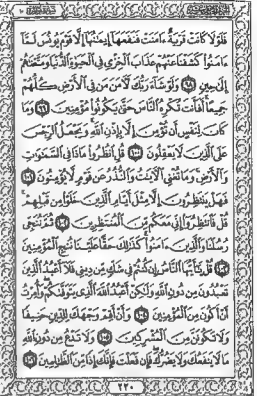 فَلَوْلَا كَانَتْ قَرْيَةٌ ءَامَنَتْ فَنَفَعَهَا إِيمَٰنُهَا إِلَّا قَوْمَ يُونُسَ لَمَّا
ءَامَنُوا۟ كَشَفْنَا عَنْهُمْ عَذَابَ ٱلْخِزْىِ فِى ٱلْحَيَوٰةِ ٱلدُّنْيَا وَمَتَّعْنَٰهُمْ
إِلَىٰ حِينٍ ٩٨ وَلَوْ شَآءَ رَبُّكَ لَءَامَنَ مَن فِى ٱلْأَرْضِ كُلُّهُمْ
جَمِيعًا أَفَأَنتَ تُكْرِهُ ٱلنَّاسَ حَتَّىٰ يَكُونُوا۟ مُؤْمِنِينَ ٩٩ وَمَا
كَانَ لِنَفْسٍ أَن تُؤْمِنَ إِلَّا بِإِذْنِ ٱللَّهِ وَيَجْعَلُ ٱلرِّجْسَ
عَلَى ٱلَّذِينَ لَا يَعْقِلُونَ ١٠٠ قُلِ ٱنظُرُوا۟ مَاذَا فِى ٱلسَّمَٰوَٰتِ
وَٱلْأَرْضِ وَمَا تُغْنِى ٱلْءَايَٰتُ وَٱلنُّذُرُ عَن قَوْمٍ لَّا يُؤْمِنُونَ ١٠١
فَهَلْ يَنتَظِرُونَ إِلَّا مِثْلَ أَيَّامِ ٱلَّذِينَ خَلَوْا۟ مِن قَبْلِهِمْ
قُلْ فَٱنتَظِرُوٓا۟ إِنِّى مَعَكُم مِّنَ ٱلْمُنتَظِرِينَ ١٠٢ ثُمَّ نُنَجِّى
رُسُلَنَا وَٱلَّذِينَ ءَامَنُوا۟ كَذَٰلِكَ حَقًّا عَلَيْنَا نُنجِ ٱلْمُؤْمِنِينَ
١٠٣ قُلْ يَٰٓأَيُّهَا ٱلنَّاسُ إِن كُنتُمْ فِى شَكٍّ مِّن دِينِى فَلَآ أَعْبُدُ ٱلَّذِينَ
تَعْبُدُونَ مِن دُونِ ٱللَّهِ وَلَٰكِنْ أَعْبُدُ ٱللَّهَ ٱلَّذِى يَتَوَفَّىٰكُمْ وَأُمِرْتُ
أَنْ أَكُونَ مِنَ ٱلْمُؤْمِنِينَ ١٠٤ وَأَنْ أَقِمْ وَجْهَكَ لِلدِّينِ حَنِيفًا
وَلَا تَكُونَنَّ مِنَ ٱلْمُشْرِكِينَ ١٠٥ وَلَا تَدْعُ مِن دُونِ ٱللَّهِ
مَا لَا يَنفَعُكَ وَلَا يَضُرُّكَ فَإِن فَعَلْتَ فَإِنَّكَ إِذًا مِّنَ ٱلظَّٰلِمِينَ ١٠٦
٢٢٠